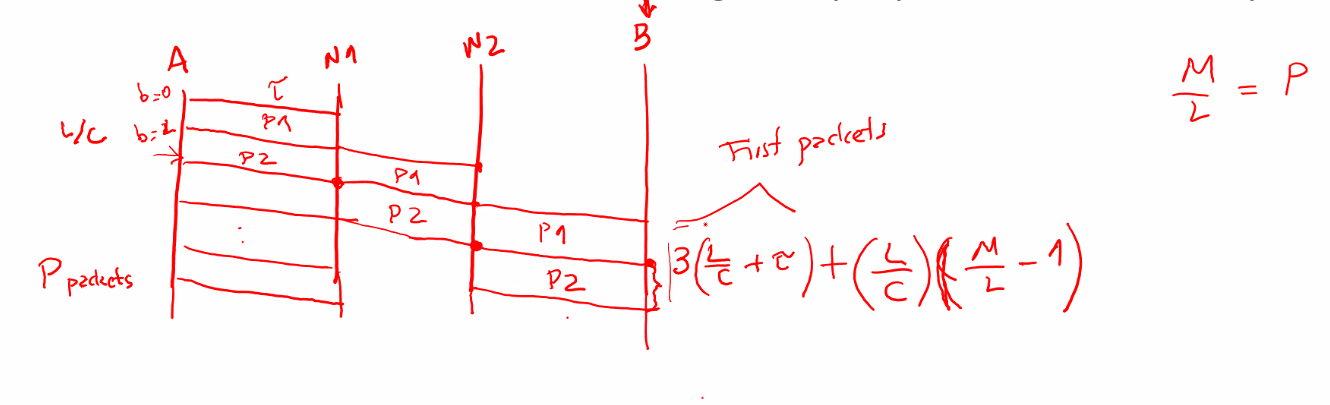 A N1 N2 B
b=0 τ
L/C b=L P1
P2 P1
P2 P1
P2
P packets
First packets
3(L/C + τ) + (L/C)(M/L - 1)
M/L = P